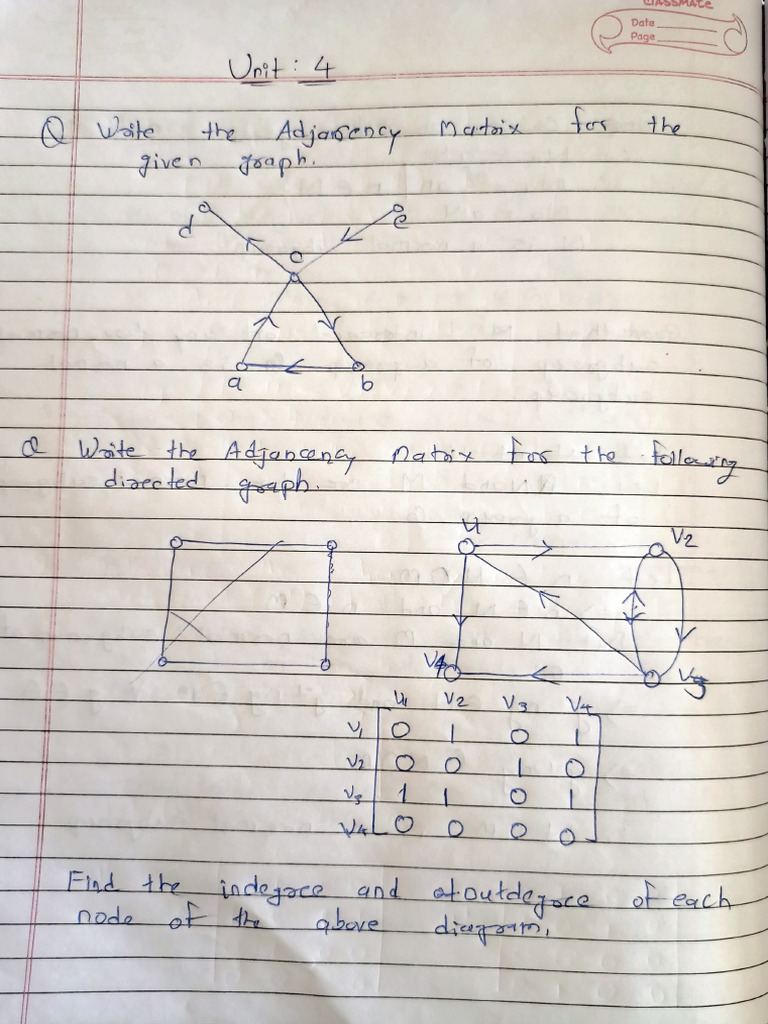 CLASSMATE
Date
Page
Unit : 4
Q Write the Adjansency Matrix for the
given graph.
d e
c
a b
Q Write the Adjancency Matrix for the following
directed graph.
V1 V2
V4 V3
V1 V2 V3 V4
V1 0 1 0 1
V2 0 0 1 0
V3 1 1 0 1
V4 0 0 0 0
Find the indegree and outdegree of each
node of the above diagram.